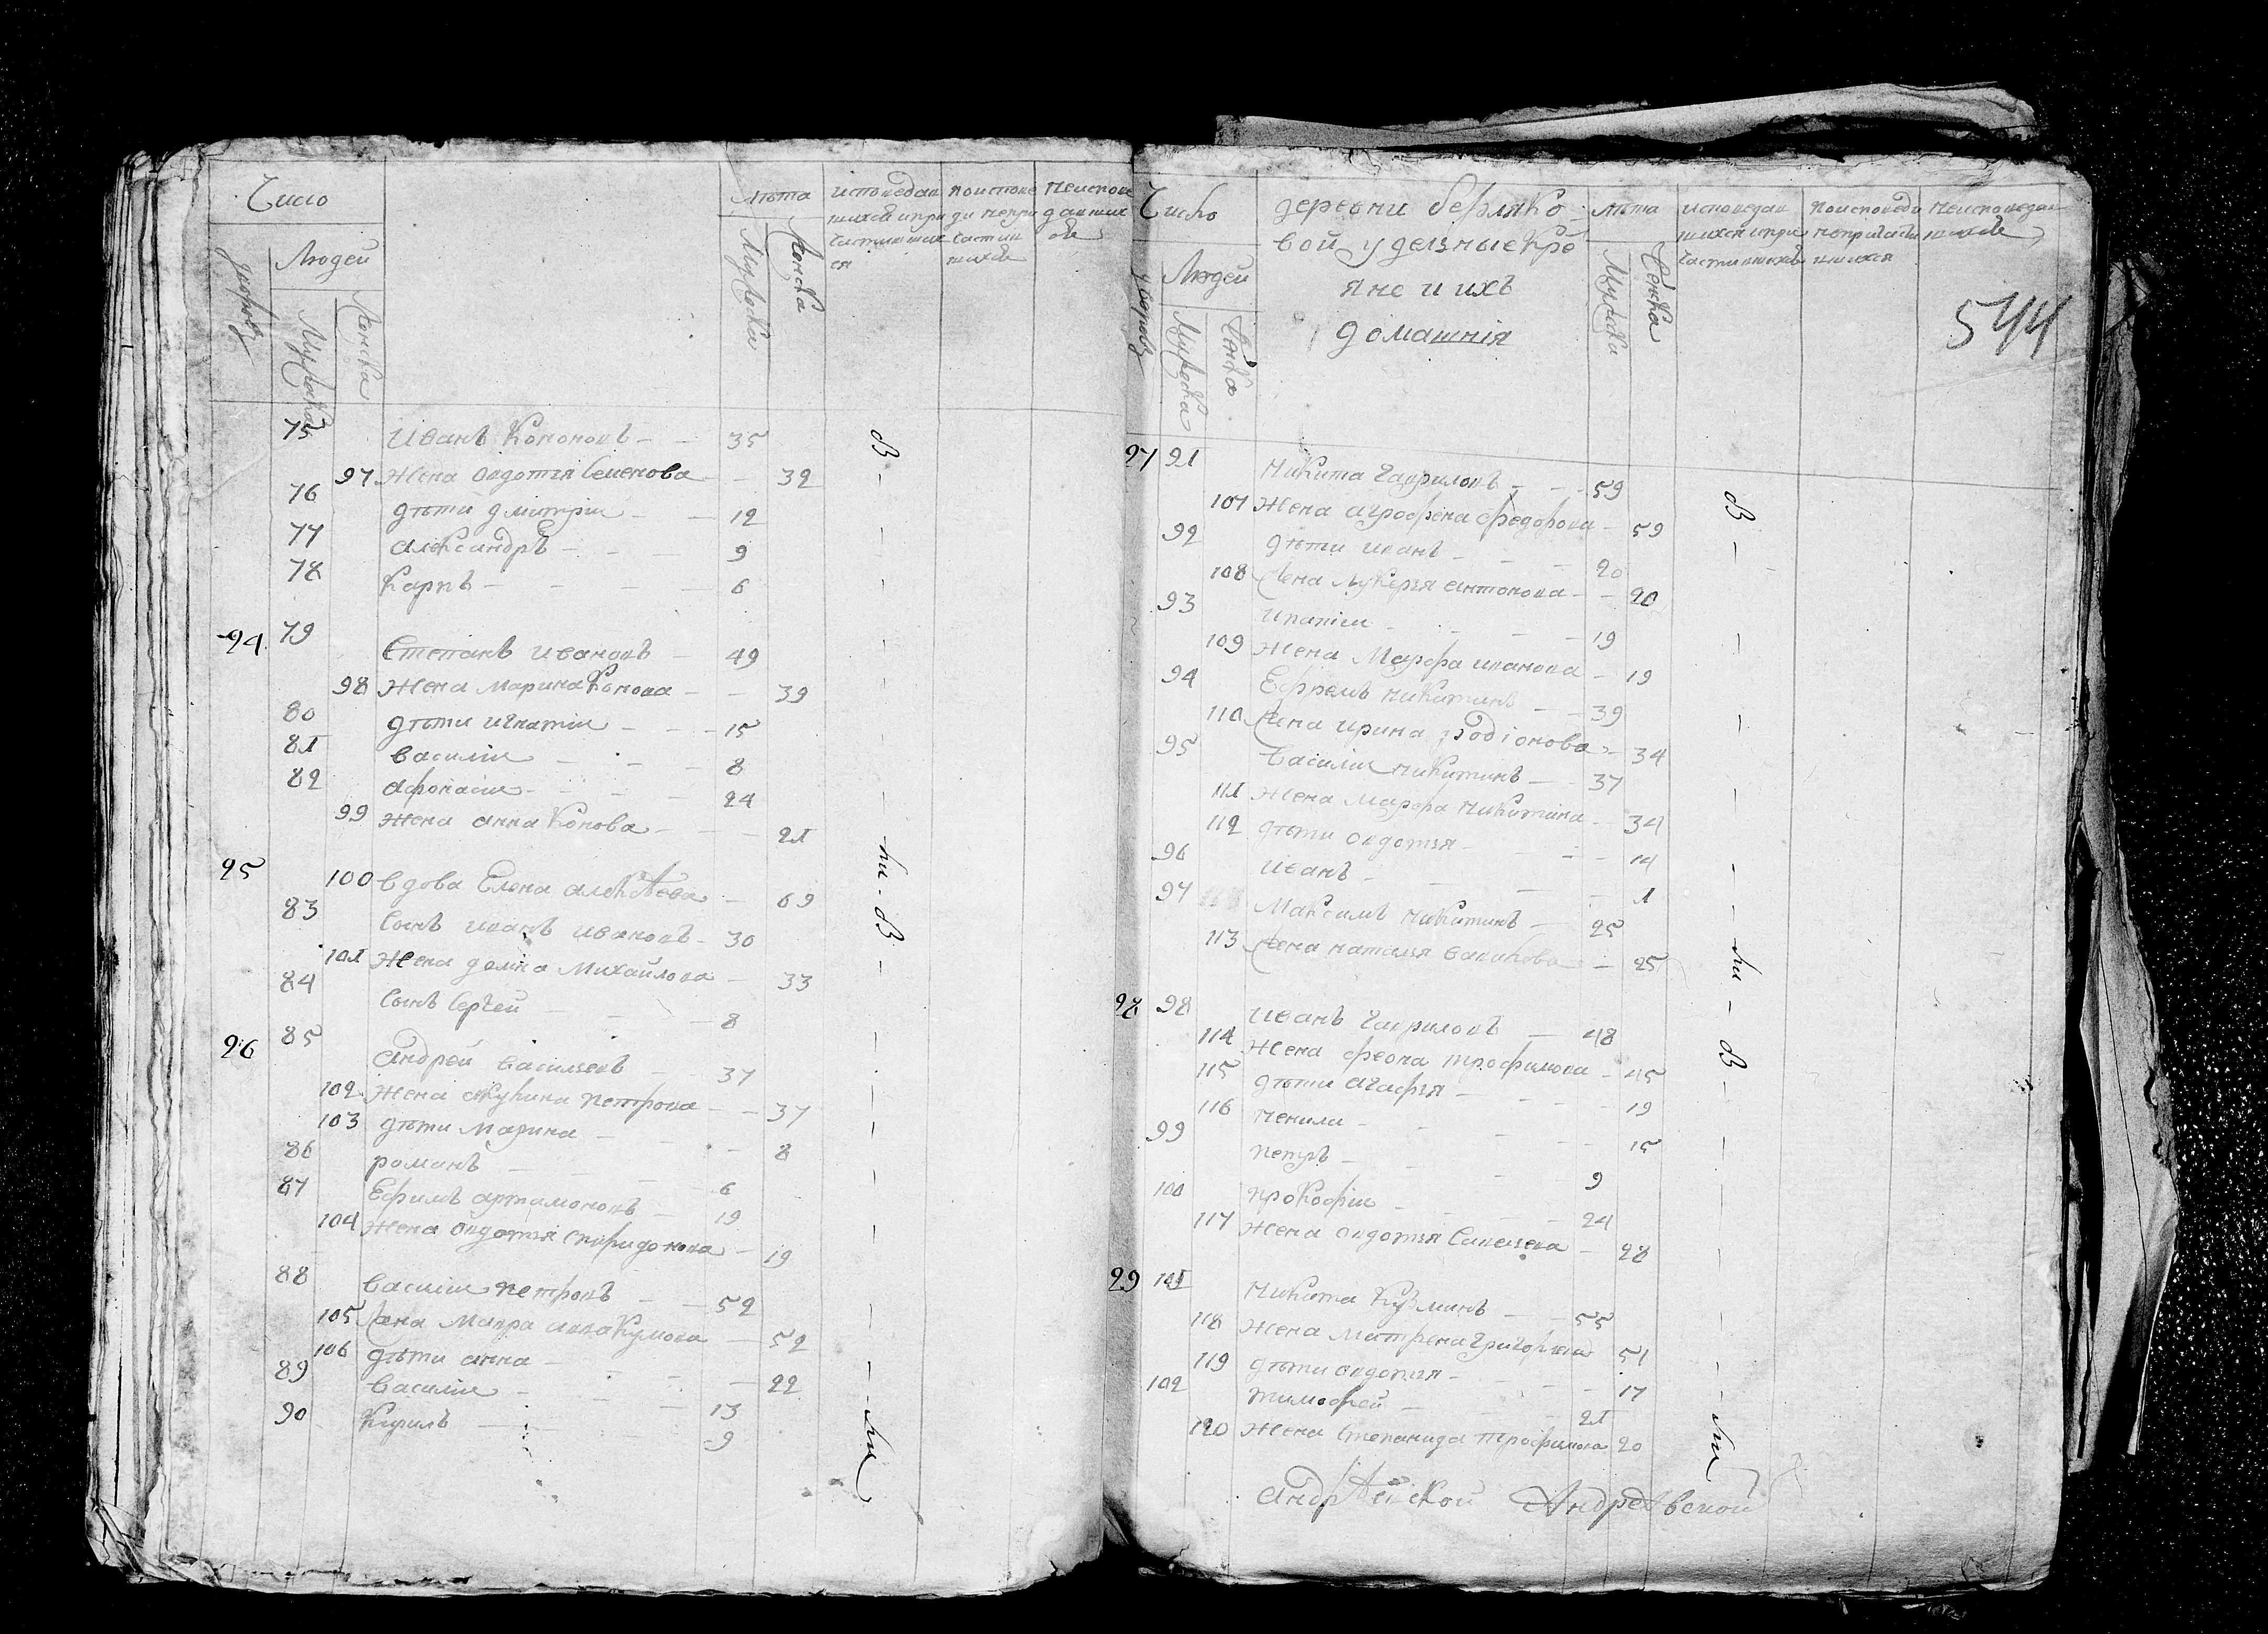 Число
Людей
дворовъ
Мужеска
Женска
Лѣта
Мужеска
Женска
исповедав
шихся и при
частивших
ся
поиспове
ди непри
частив
шихся
неиспове
давших
ся
75 Иванъ Кононовъ 35
97 жена овдотья Семенова 32
76 дѣти дмитрии 12
77 александръ 9
78 Карпъ 6
24 79 Степанъ ивановъ 49
98 жена марина Конова 39
80 дѣти игнатии 15
81 василии 8
82 афонасии 24
99 жена анна Конова 21
25 100 вдова Елена алекѣева 69
83 сынъ иванъ ивановъ 30
101 жена Михайлова 33
84 сынъ Сергей 8
26 85 андрей васильевъ 37
102 жена акулина петрова 37
103 дѣти марина 8
86 романъ 6
87 Ефимъ артамоновъ 19
104 жена овдотья спиридонова 19
88 василии петровъ 52
105 жена Мавра аввакумова 52
106 дѣти анна 22
89 василии 13
90 Кирилъ 9
въ
ни
въ
ни
Число
Людей
дворовъ
Мужеска
Женска
деревни берляко
вой удельные кре
яне и ихъ
домашнія
лѣта
Мужеска
Женска
исповедав
шихся и при
частившихъ
поисповеди
непричасти
вшихся
неисповедав
шихся
544
27 91 Никита гаврилов 59
107 жена агрофена федорова 59
92 дѣти иванъ 20
108 жена лукерья антонова 20
93 ипатии 19
109 жена Марфа иванова 19
94 Ефремъ никитинъ 39
110 жена ирина родіонова 34
95 василии никитинъ 37
111 жена марфа никитина 34
112 дѣти овдотья 14
96 иванъ 1
97 Максимъ никитинъ 25
113 жена наталья 25
28 98 иванъ гавриловъ 48
114 жена феона трофимова 45
115 дѣти агафья 19
116 ненила 15
99 петръ 9
100 прокофіи 24
117 жена овдотья Савельева 28
29 101 Никита Кузминъ 55
118 жена матрена григорьева 51
119 дѣти овдотья 17
102 тимофей 21
120 жена степанида трофимова 20
въ
ни
въ
ни
андрѣйской Андрѣевской